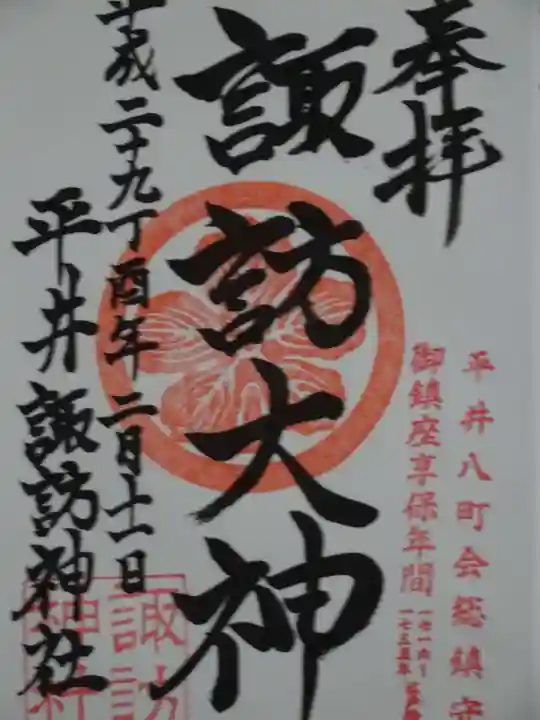 奉拝
平井八町会総鎮守
御鎮座享保年間
一七一六〜
一七三五年
諏訪大神
平成二十九丁酉年二月十一日
平井諏訪神社